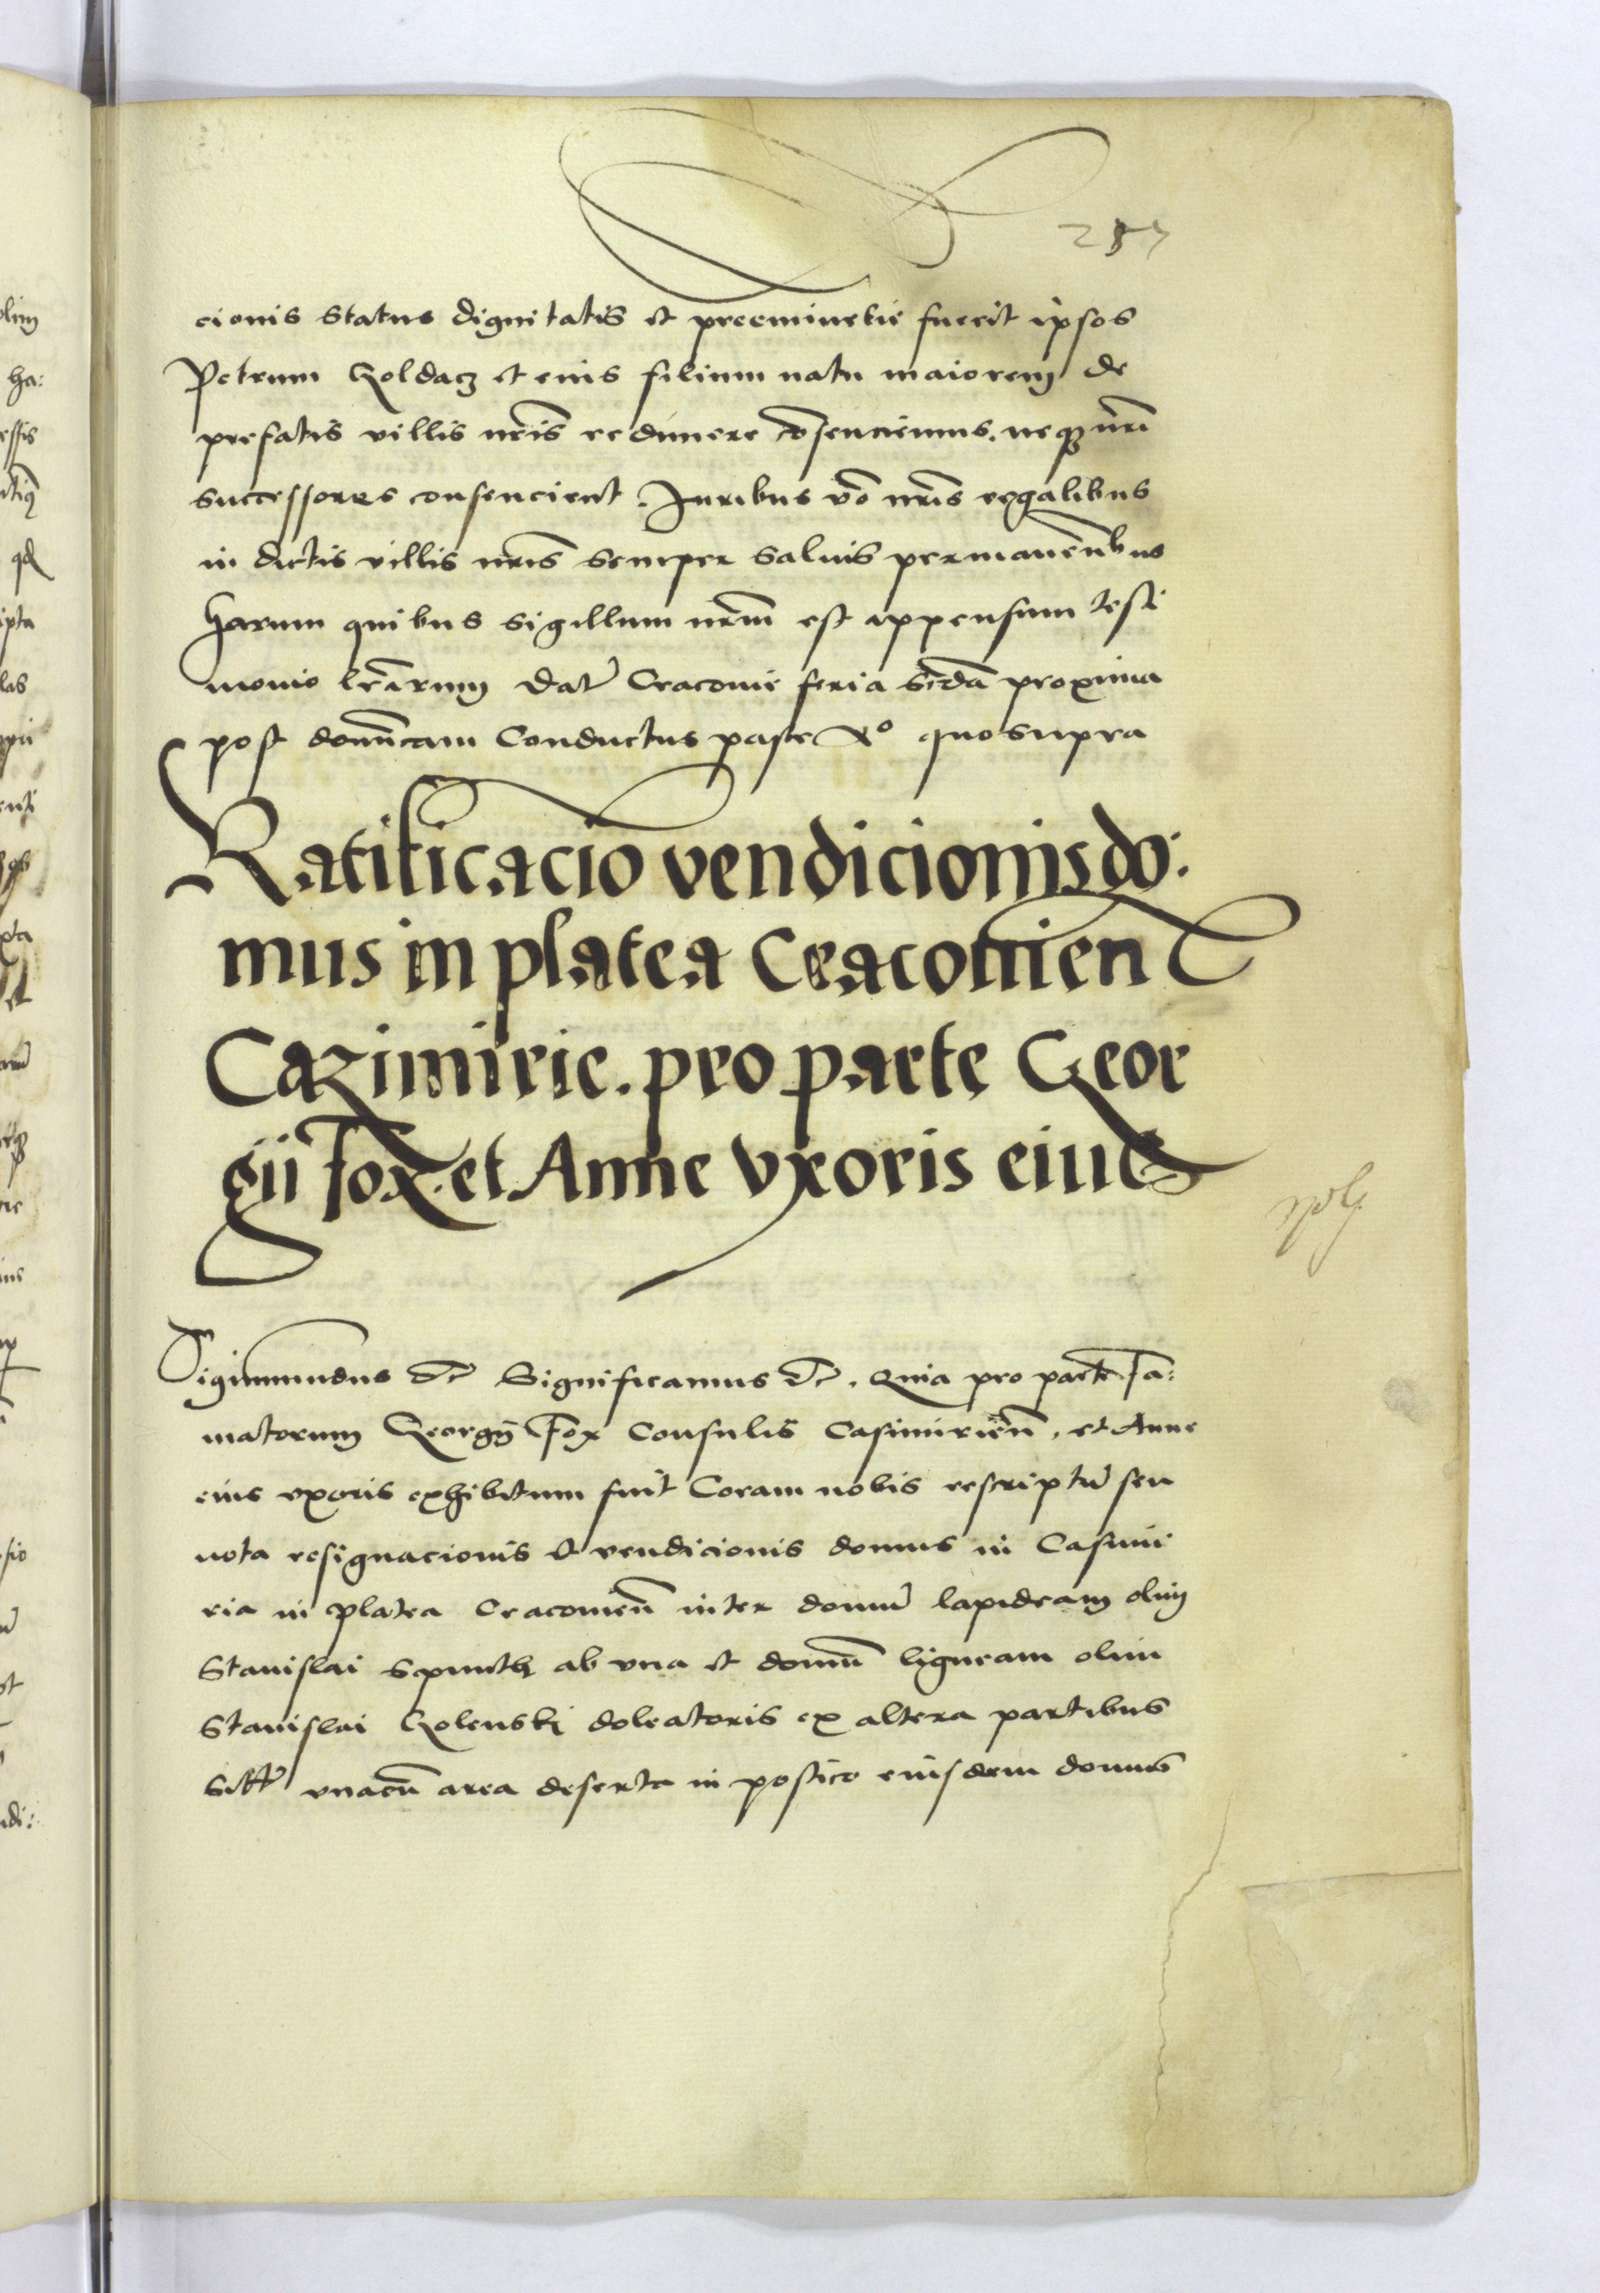 cionis status dignitatis et preeminētie fuerit ipsos
Petrum Goldacz et eius filium natu maiorem de
prefatis villis nr̄is redimere cōsenciemus. neqȝ nr̄i
successores consencient. Juribus vō nr̄is regalibus
in dictis villis nr̄is semper saluis permanētibus
harum quibus sigillum nr̄um est appensum testi
monio lr̄arum dat̄ Cracovie feria secūda proxima
post domīcam Conductus pasce quo supra
Ratificacio vendicionis do:
mus in platea Cracovien
Cazimirie. pro parte Geor
gii Fox. et Anne vxoris eius
Sigismundus etc Significamus etc. Quia pro parte Fa:
matorum Georgij Fox Consulis Casimirieñ. et Anne
eius vxoris exhibitum fuit Coram nobis rescriptū seu
nota resignacionis et vendicionis domus in Casimi
ria in platea Cracovieñ inter domū lapideam olim
Stanislai ab vna et domū ligneam olim
Stanislai Golenski doleatoris ex altera partibus
vnacū area deserta in postico eiusdem domus